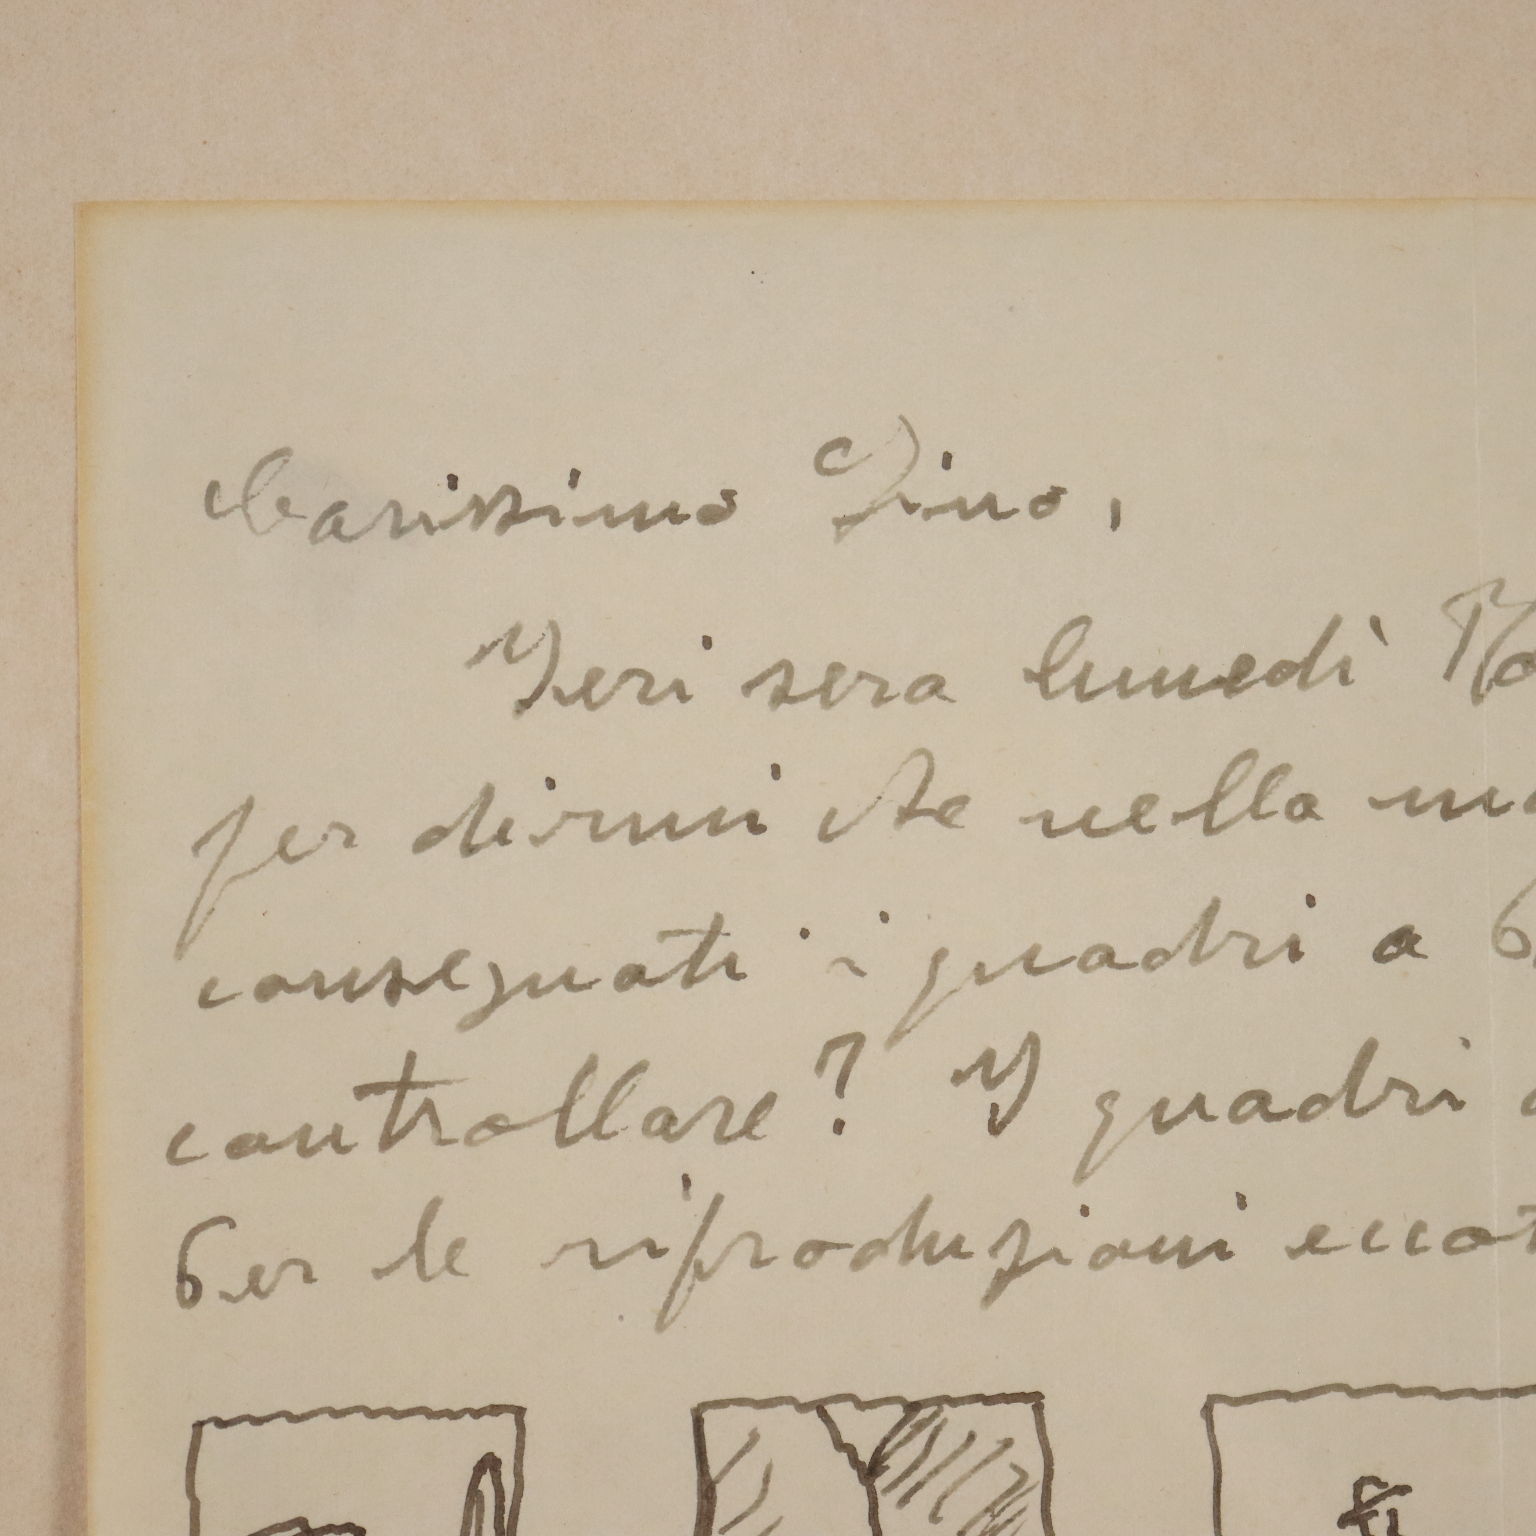 Carissimo Dino,
Ieri sera lunedì
per dirmi che nella
consegnati i quadri a
controllare? I quadri
Per le riproduzioni